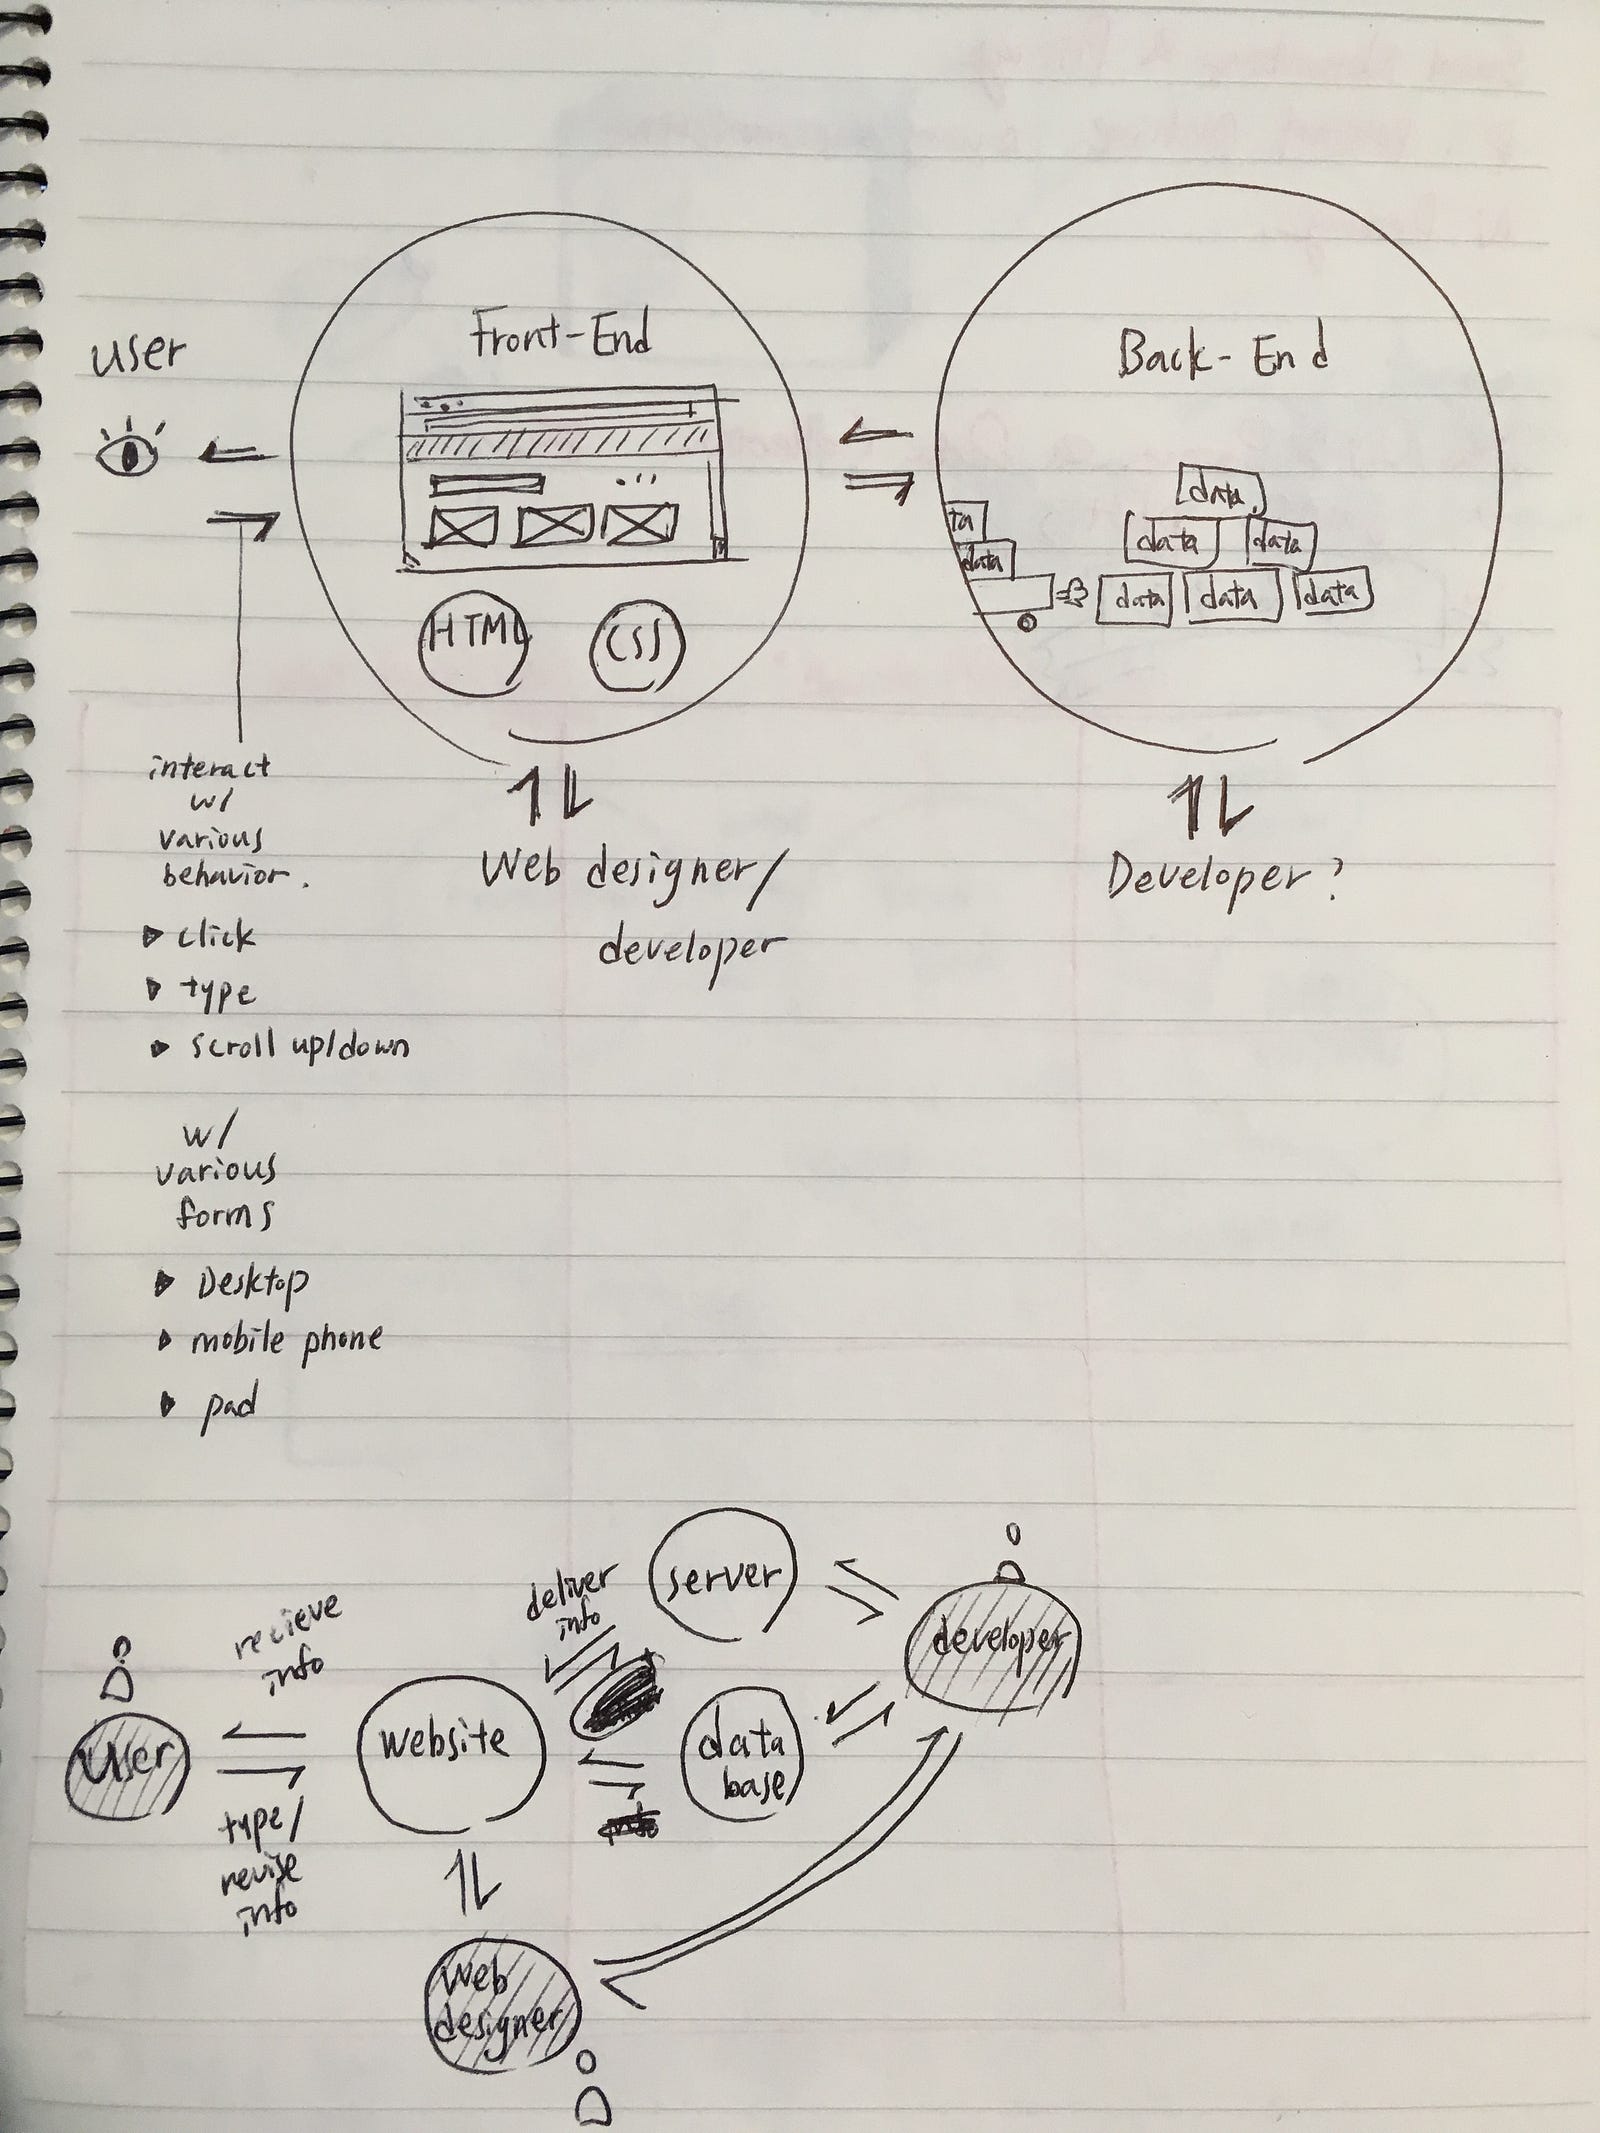 user
Front-End
HTML
CSS
Back-End
data
data
data
ta
data
data
data
data
interact
w/
various
behavior.
click
type
scroll up/down
w/
various
forms
Desktop
mobile phone
pad
Web designer/
developer
Developer?
server
deliver
info
developer
recieve
info
user
website
data
base
type/
revise
info
web
designer